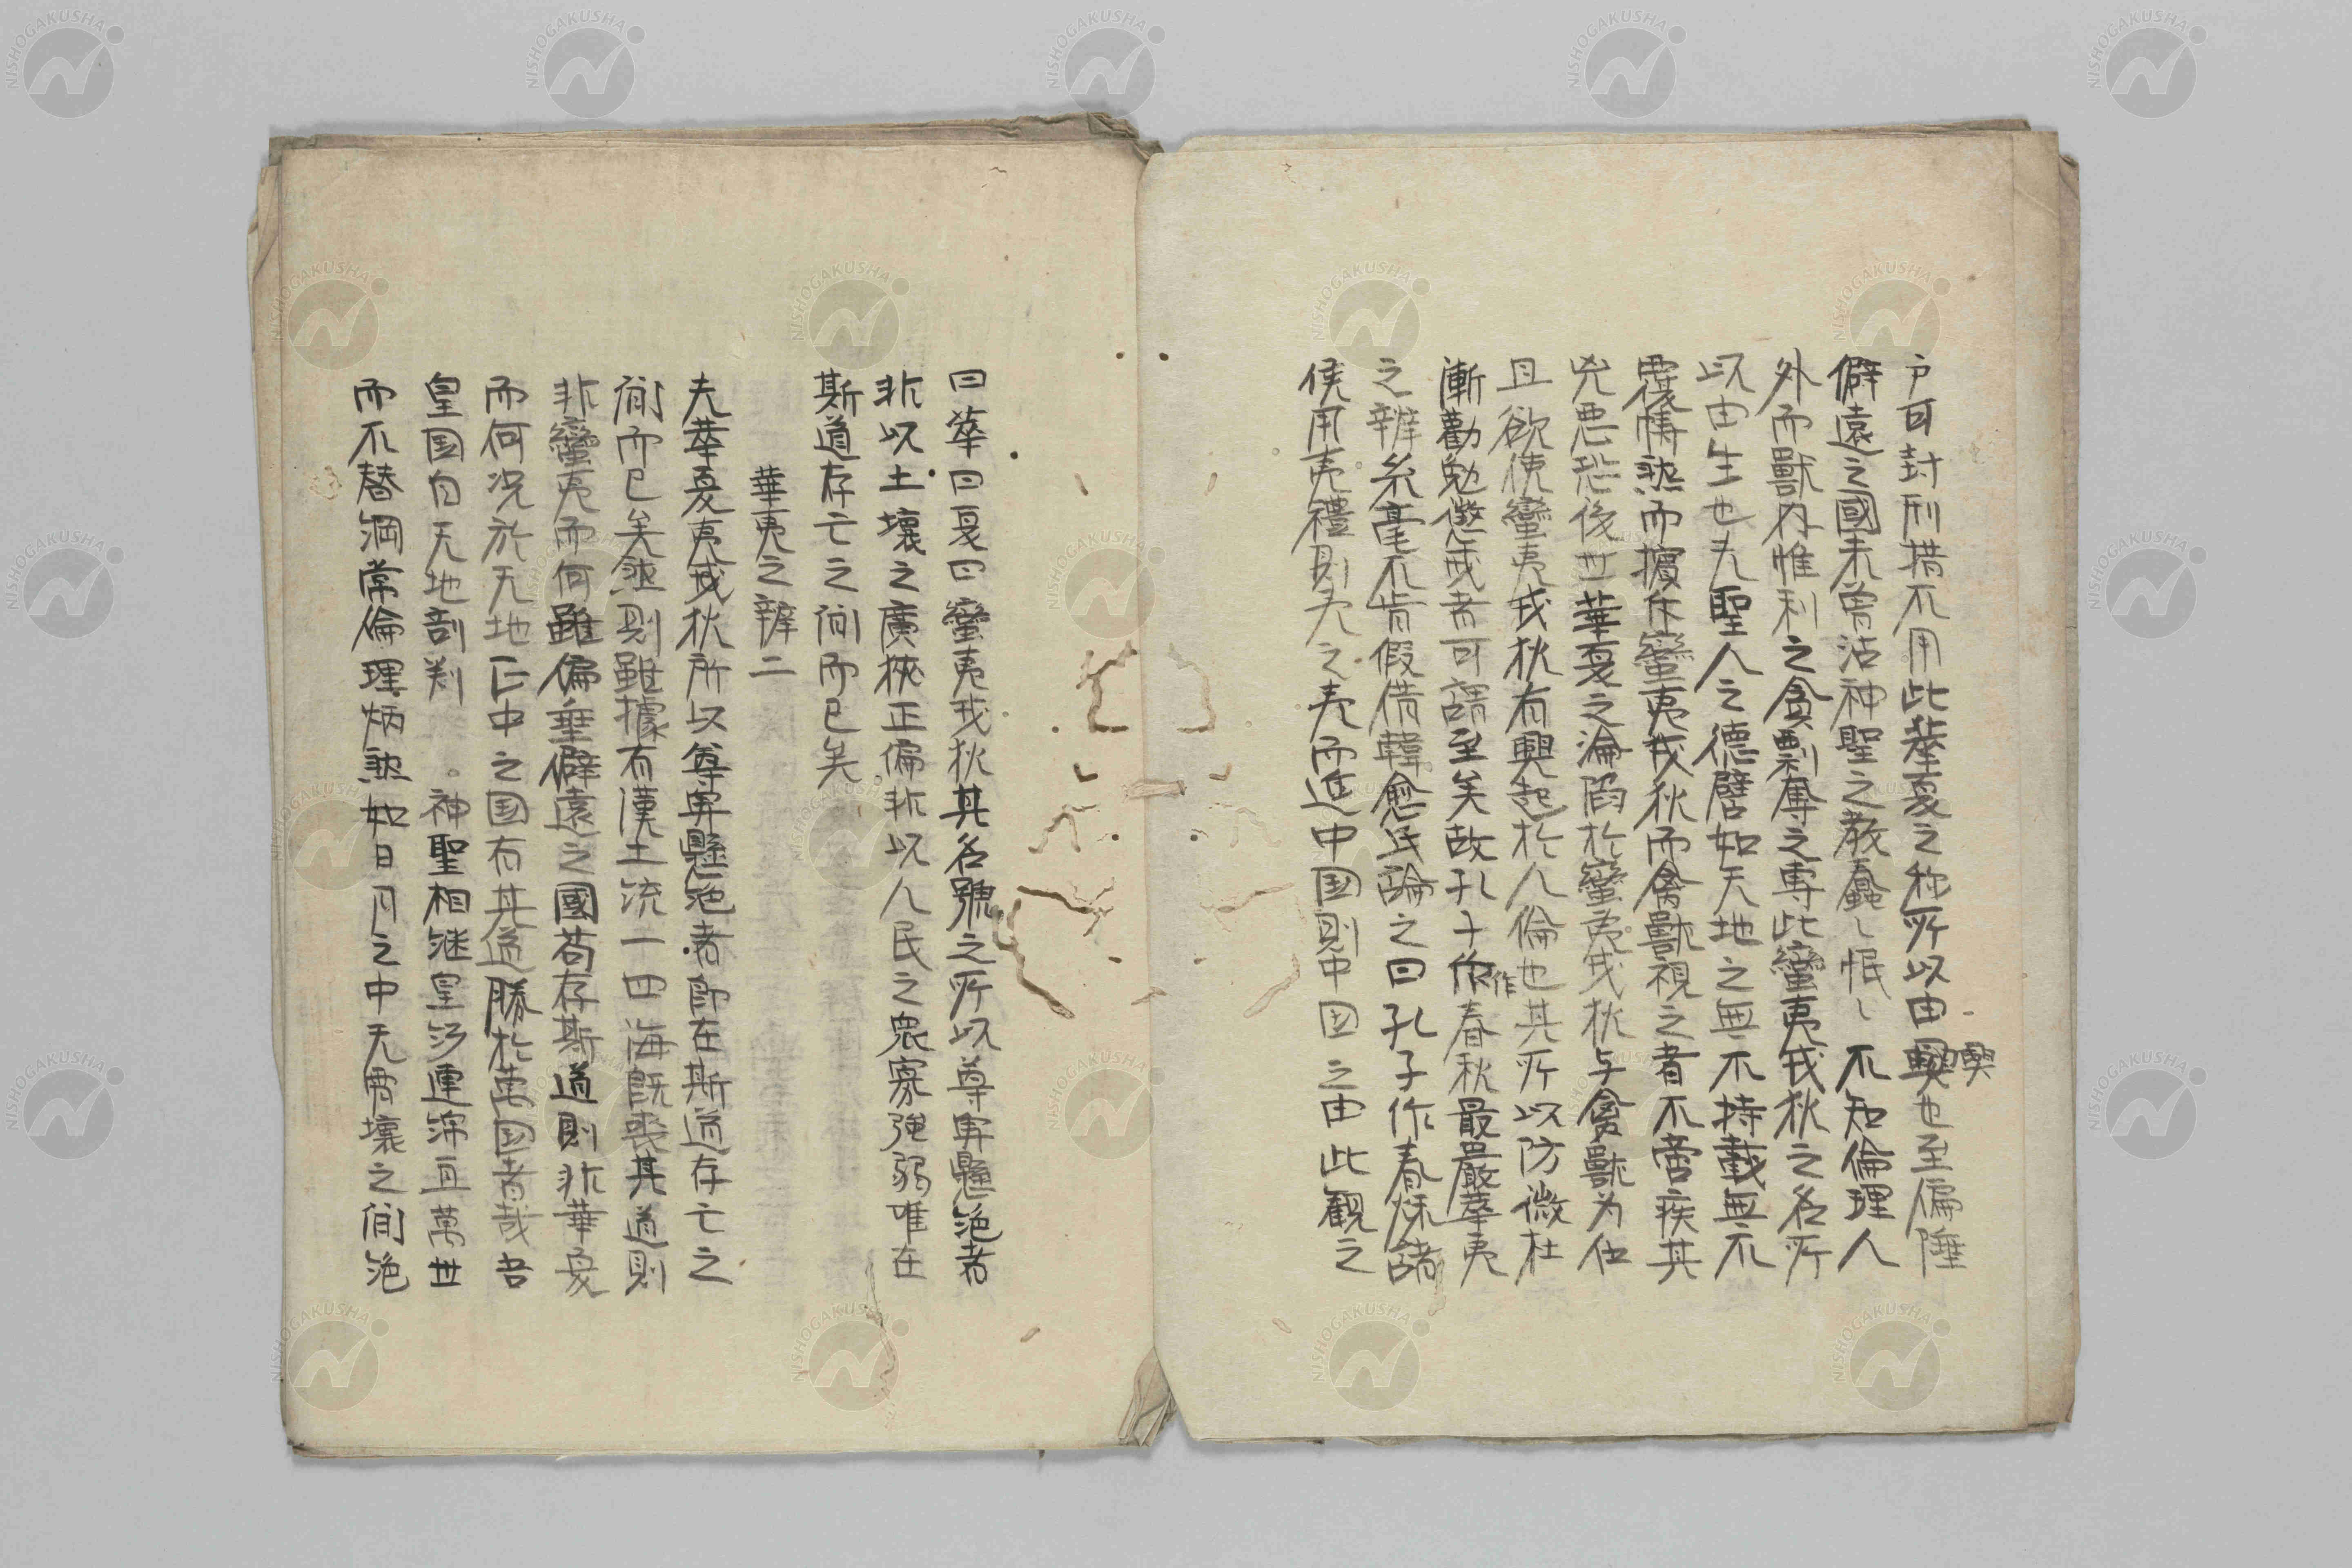 戸可封刑措不用此華夏之称所以由興也至偏陲
興
僻遠之國未曽沾神聖之教蠢〻怋〻不知倫理人
外而獸内惟利之貪剽奪之専此蠻夷戎狄之名所
以由生也夫聖人之德譬如天地之無不持載無不
覆幬然而擯斥蠻夷戎狄而禽獸視之者不啻疾其
兇悪恐後世華夏之淪陷於蠻夷戎狄与禽獸为伍
且欲使蠻夷戎狄有興起於人倫也其所以防微杜
漸勸勉懲戒者可謂至矣故孔子作春秋最嚴華夷
作
之辨糸毫不肯假借韓愈氏論之曰孔子作春秌諸
侯用夷禮則夷之夷而進中国則中国之由此觀之
曰華曰夏曰蠻夷戎狄其名號之所以尊卑懸絶者
非以土壤之廣狹正偏非以人民之衆寡強弱唯在
斯道存亡之间而已矣
華夷之辨二
夫華夏夷戎狄所以尊卑懸絶者卽在斯道存亡之
间而已矣然則雖據有漢土流一四海既喪其道則
非蠻夷而何雖偏垂僻遠之國苟存斯道則非華夏
而何况於天地正中之国有其道勝於萬国者哉吾
皇国自天地剖判。神聖相継皇統連綿亘萬世
而不替綱常倫理炳然如日月之中天霄壤之间絶